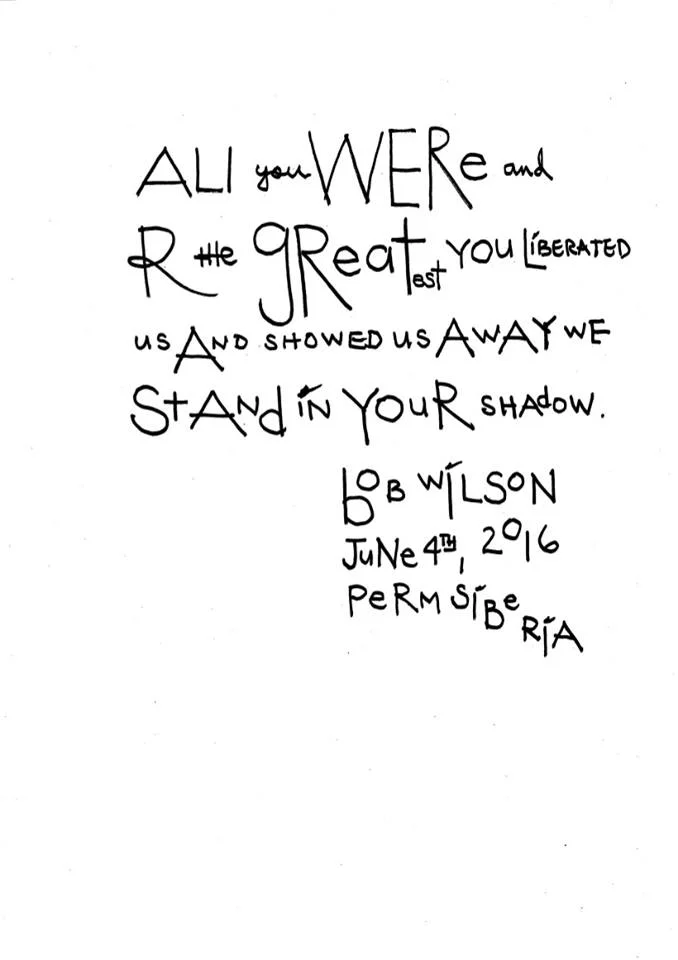 ALI you WERe and
R the gREatest YOU LiBERATED
US AND SHOWED US AWAY WE
STANd iN YOUR SHAdOW.
bOB WiLSON
JuNe 4TH, 2016
PeRM SiBeRiA